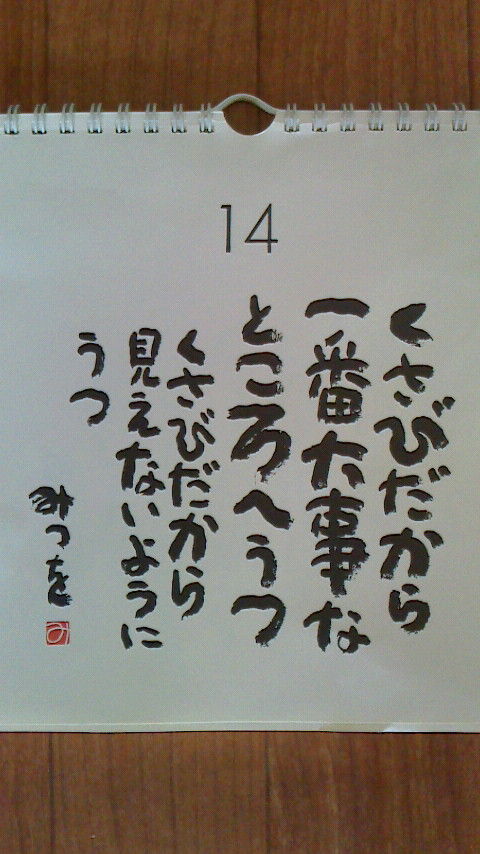 14
くさびだから
一番大事な
ところへうつ
くさびだから
見えないように
うつ
みつを
み